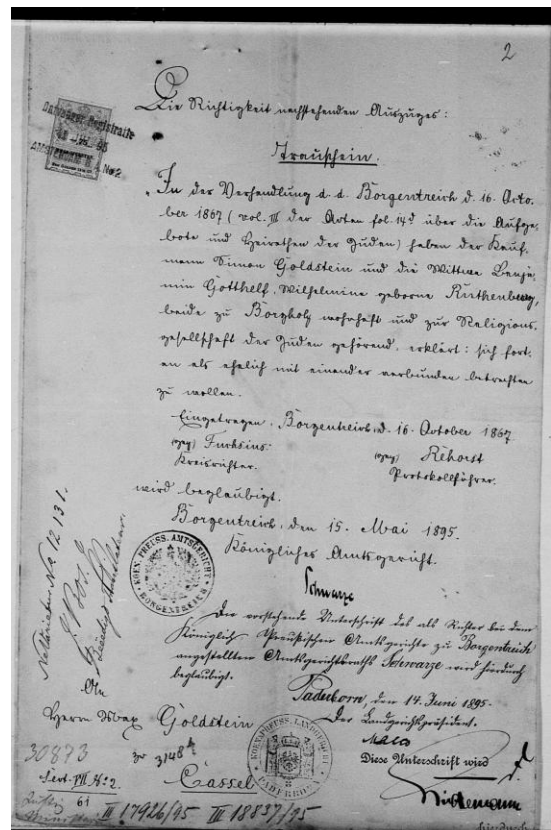 2
Die Richtigkeit nachstehenden Auszuges:
Trauschein.
In der Verhandlung d. d. Borgentreich d. 16. Octo-
ber 1867 (vol. III der Acten fol. 14 über die Aufge-
bote und Heirathen der Juden) haben der Kauf-
mann Simon Goldstein und die Wittwe Benja-
min Gotthelf, Wilhelmine geborne Ruthenberg,
beide zu Borgholz wohnhaft und zur Religions-
gesellschaft der Juden gehörend, erklärt: sich fort-
an als ehelich mit einander verbunden betrachten
zu wollen.
Eingetragen, Borgentreich, d. 16. October 1867
(gez) Fuchsius (gez) Rehorst
Kreisrichter. Protokollführer.
wird beglaubigt.
Borgentreich, den 15. Mai 1895.
Königliches Amtsgericht.
KÖN. PREUSS. AMTSGERICHT
BORGENTREICH
Schwarze
Die vorstehende Unterschrift des als Richter bei dem
Königlich Preußischen Amtsgerichte zu Borgentreich
angestellten Amtsgerichtsraths Schwarze wird hierdurch
beglaubigt.
Paderborn, den 14. Juni 1895.
Der Landgerichtspräsident.
KOEN. PREUSS. LANDGERICHT
PADERBORN
An
Herrn Max Goldstein
zu 3148
Cassel
Diese Unterschrift wird
hierdurch
30873
61
III 17926/95 III 18837/95
12131.